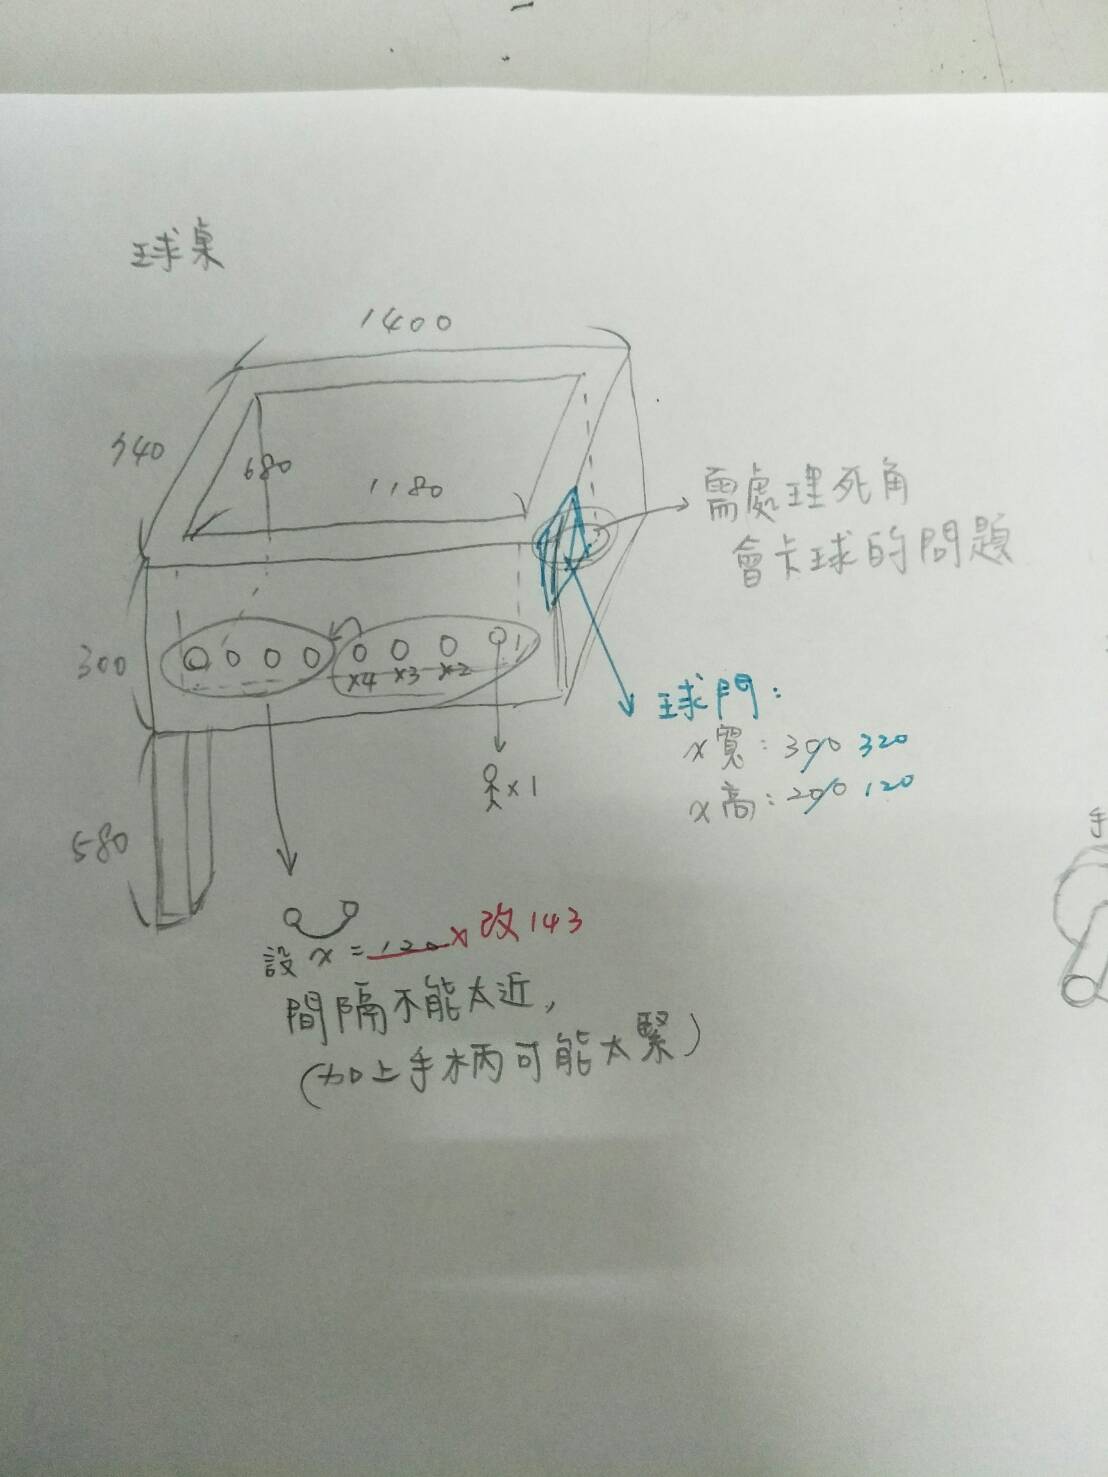 球桌
1400
740
680
1180
需處理死角
會卡球的問題
300
x4 x3 x2
球門：
x寬：390 320
x高：290 120
x1
580
設 x = 120 x 改 143
間隔不能太近，
(加上手木柄可能太緊)
手